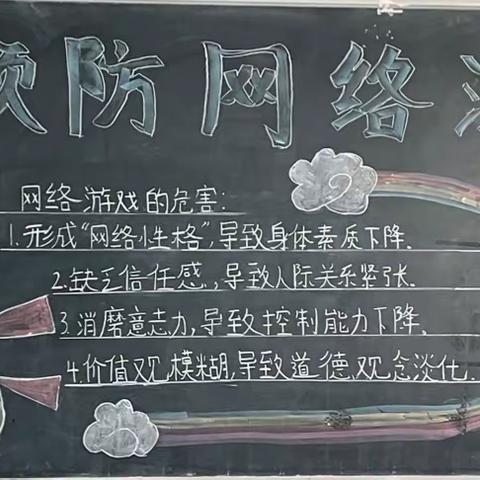 预防网络沉
网络游戏的危害:
1.形成“网络性格”,导致身体素质下降.
2.缺乏信任感,导致人际关系紧张.
3.消磨意志力,导致控制能力下降.
4.价值观模糊,导致道德观念淡化.